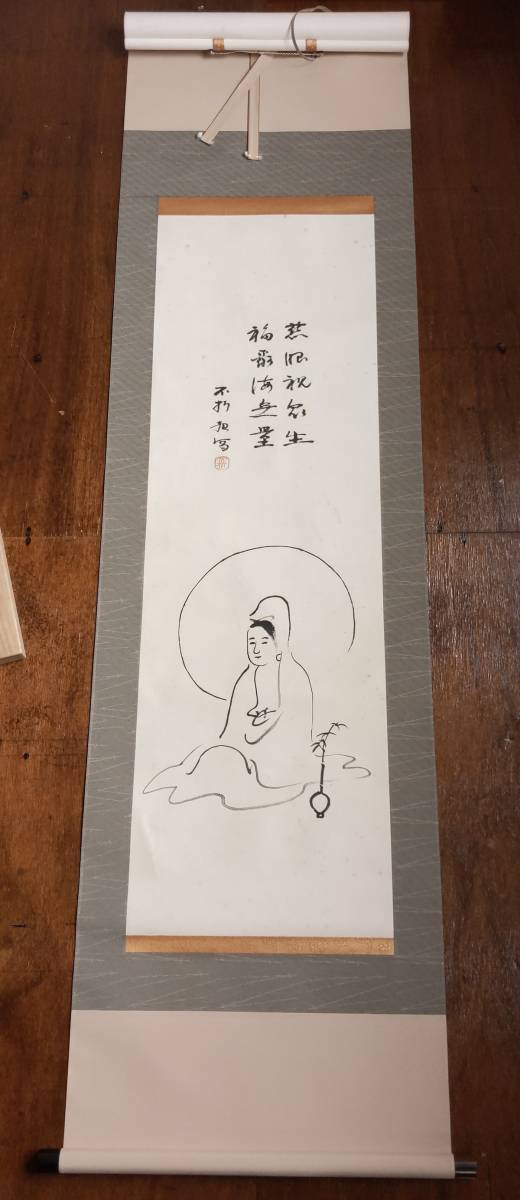 慈眼視衆生
福聚海無量
不折拙写